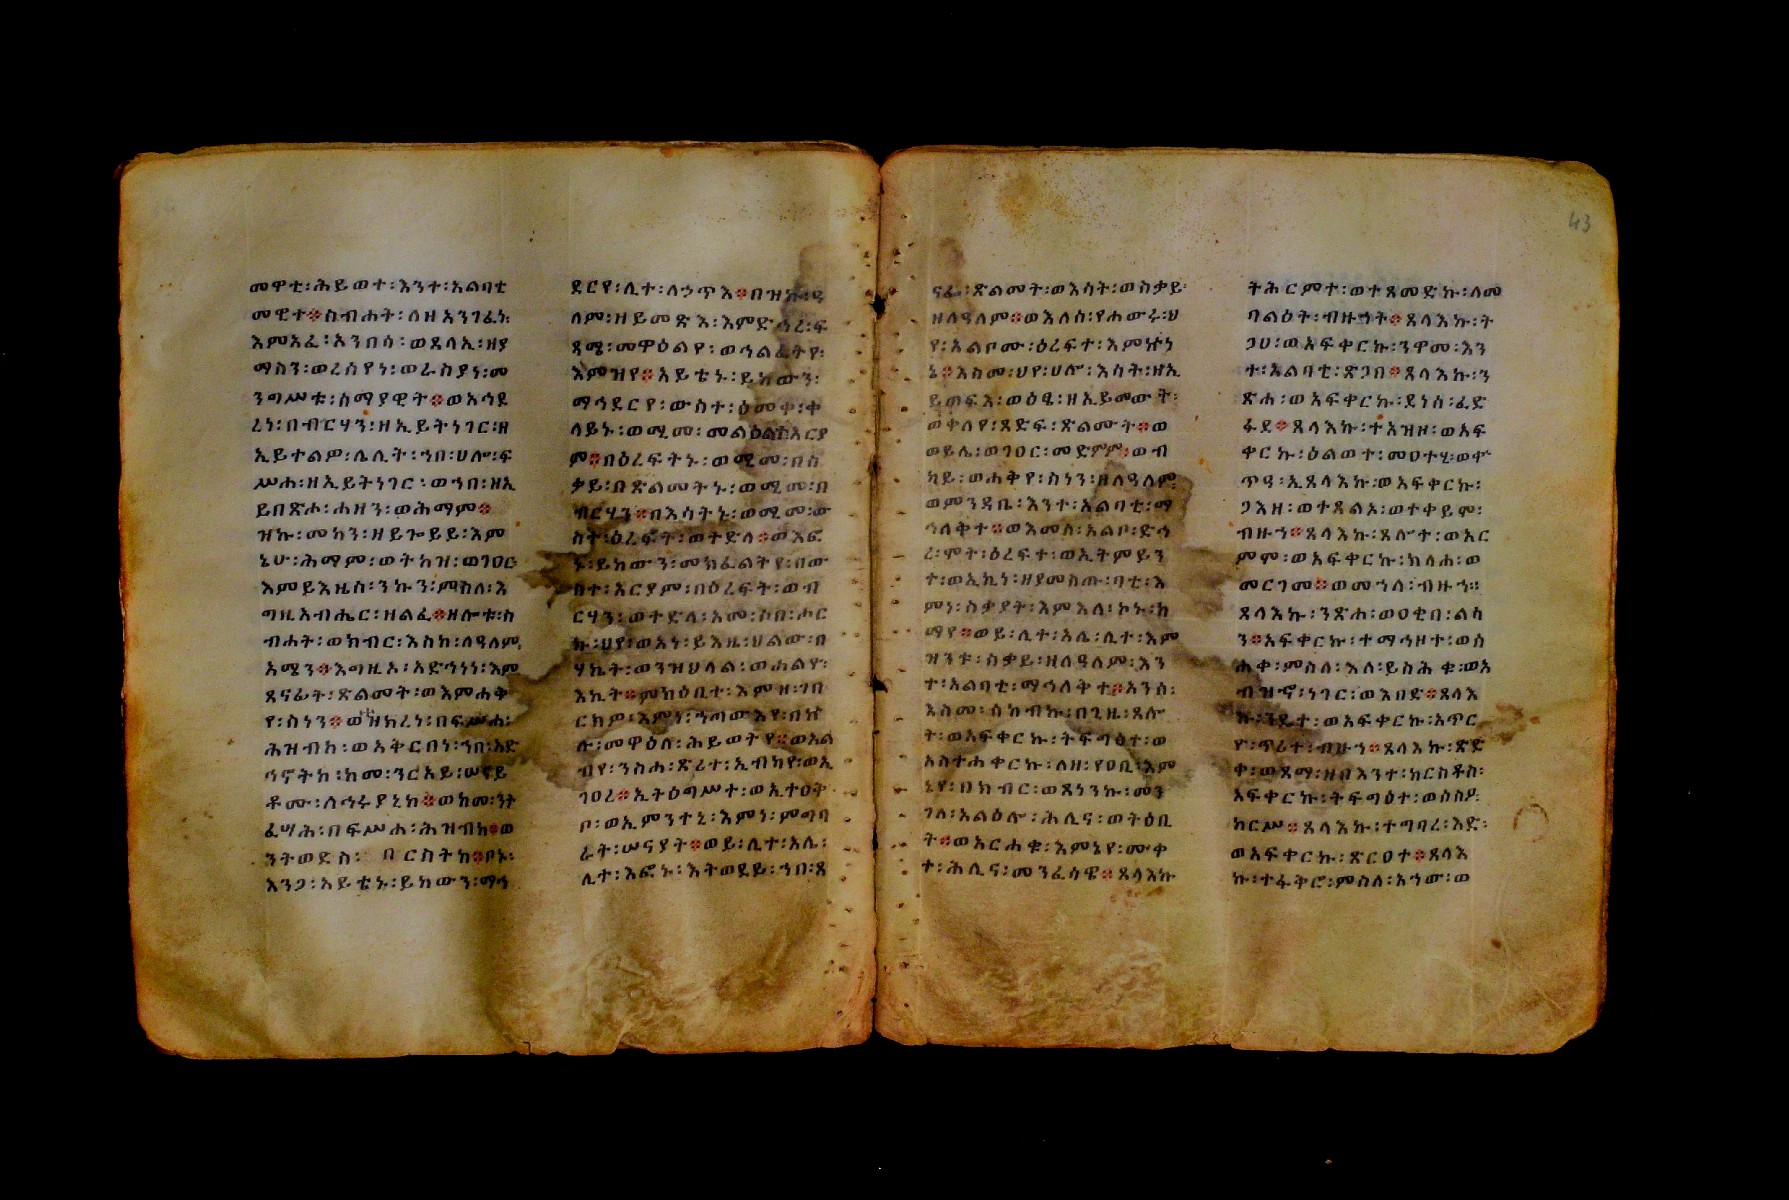 መዋቲ፡ሕይወተ፡እንተ፡አልባቲ
መዊተ፨ስብሐት፡ለዘ አንገፈነ፡
እምአፈ፡አንበሳ፡ወጸላኢ፡ዘያ
ማስን፡ወረሰየነ፡ወራስያነ፡መ
ንግሥቱ፡ሰማያዊት፨ወአኅደ
ረነ፡በብርሃን፡ዘኢይትነገር፡ዘ
ኢይተልዎ፡ሌሊት፡ኀበ፡ሀሎ፡ፍ
ሥሐ፡ዘኢይትነገር፡ወኀበ፡ዘኢ
ይበጽሖ፡ሐዘን፡ወሕማም፨
ዝኩ፡መካን፡ዘይጐይይ፡እም
ኔሁ፡ሕማም፡ወትከዝ፡ወገዐር
እምይእዜሰ፡ንኩን፡ምስለ፡እ
ግዚአብሔር፡ዘልፈ፨ዘሎቱ፡ስ
ብሐት፡ወክብር፡እስከ፡ለዓለም
አሜን፨እግዚኦ፡አድኅነነ፡እም
ጸናፊት፡ጽልመት፡ወእምሐቅ
የ፡ስነን፨ወዝክረነ፡በፍሥሐ፡
ሕዝብከ፡ወአቅርበነ፡ኀበ፡አድ
ኅኖትከ፡ከመ፡ንርአይ፡ሠናይ
ቶሙ፡ለኅሩያኒከ፨ወከመ፡ንት
ፈሣሕ፡በፍሥሐ፡ሕዝብከ፨ወ
ንትወደስ፡ በርስትከ፨ቦኑ፡
እንጋ፡አይቴኑ፡ይከውን፡ማኅ
ደርየ፡ሊተ፡ለኃጥእ፨በዝኩ፡ዓ
ለም፡ዘይመጽእ፡እምድኅረ፡ፍ
ጻሜ፡መዋዕልየ፡ወኅልፈትየ፡
እምዝየ፨አይቴኑ፡ይከውን፡
ማኅደርየ፡ውስተ፡ዕመቀ፡ቀ
ላይኑ፡ወሚመ፡መልዕልተ፡አርያ
ም፨በዕረፍትኑ፡ወሚመ፡በስ
ቃይ፡በጽልመትኑ፡ወሚመ፡በ
ብርሃን፨በእሳትኑ፡ወሚመ፡ው
ስተ፡ዕረፍት፡ወተድላ፨ወእፎ
ኑ፡ይከውን፡መክፈልትየ፡በው
ስተ፡አርያም፡በዕረፍት፡ወብ
ርሃን፡ወተድላ፡አመ፡ሶበ፡ሖር
ኩ፡ህየ፡ወአነ፡ይእዜ፡ሀልው፡በ
ሃኬት፡ወንዝህላል፡ወሐልየ፡
እኪት፨ምክዕቢተ፡እምዘ፡ገበ
ርክዎ፡እምነ፡ኀጣውእየ፡በኵ
ሉ፡መዋዕለ፡ሕይወትየ፨ወአል
ብየ፡ንስሐ፡ጽሪተ፡ኢብከየ፡ወኢ
ገዐረ፨ኢትዕግሥተ፡ወኢተዐቅ
ቦ፡ወኢምንተኒ፡እምነ፡ምግባ
ራት፡ሠናያት፨ወይ፡ሊተ፡አሌ፡
ሊተ፡እፎኑ፡እትወደይ፡ኀበ፡ጸ
ናፌ፡ጽልመት፡ወእሳት፡ወስቃይ፡
ዘለዓለም፨ወእለሰ፡የሐውሩ፡ህ
የ፡አልቦሙ፡ዕረፍተ፡እምኵነ
ኔ፨እስመ፡ህየ፡ሀሎ፡እሳት፡ዘኢ
ይጠፍእ፡ወዕፄ፡ዘኢይመውት፡
ወቀላየ፡ጸድፍ፡ጽልሙት፨ወ
ወይሌ፡ወገዐር፡መድምም፡ወብ
ካይ፡ወሐቅየ፡ስነን፡ዘለዓለም
ወምንዳቤ፡እንተ፡አልባቲ፡ማ
ኅለቅተ፨ወእመሰ፡አልቦ፡ድኅ
ረ፡ሞት፡ዕረፍተ፡ወኢትምይን
ተ፡ወኢኪነ፡ዘያመስጡ፡ባቲ፡እ
ምነ፡ስቃያት፡እምእለ፡ኮኑ፡ከ
ማየ፨ወይ፡ሊተ፡አሌ፡ሊተ፡እም
ዝንቱ፡ስቃይ፡ዘለዓለም፡እን
ተ፡አልባቲ፡ማኅለቅተ፨አንሰ፡
እስመ፡ሰከብኩ፡በጊዜ፡ጸሎ
ት፡ወአፍቀርኩ፡ትፍግዕተ፡ወ
አስተሐቀርኩ፡ለዘ፡የዐቢ፡እም
ኔየ፡በክብር፡ወጸነንኩ፡መን
ገለ፡አልዕሎ፡ሕሊና፡ወትዕቢ
ት፨ወአርሐቁ፡እምኔየ፡ሙቀ
ተ፡ሕሊና፡መንፈሳዊ፨ጸላእኩ
ትሕርምተ፡ወተጸመድኩ፡ለመ
ባልዕት፡ብዙኀት፨ጸላእኩ፡ት
ጋሀ፡ወአፍቀርኩ፡ንዋመ፡እን
ተ፡አልባቲ፡ጽጋበ፨ጸላእኩ፡ን
ጽሐ፡ወአፍቀርኩ፡ደነሰ፡ፈድ
ፋደ፨ጸላእኩ፡ተአዝዞ፡ወአፍ
ቀርኩ፡ዕልወተ፡መዐተሂ፡ወቍ
ጥዓ፡ኢጸላእኩ፡ወአፍቀርኩ፡
ጋእዘ፡ወተጻልአ፡ወተቀይም፡
ብዙኀ፨ጸላእኩ፡ጸሎተ፡ወአር
ምም፡ወአፍቀርኩ፡ክላሐ፡ወ
መርገመ፨ወመኀላ፡ብዙኀ።
ጸላእኩ፡ንጽሐ፡ወዐቂበ፡ልሳ
ን፨አፍቀርኩ፡ተማኅዞተ፡ወሰ
ሐቀ፡ምስለ፡እለ፡ይስሕቁ፡ወአ
ብዝኆ፡ነገር፡ወእበድ፨ጸላእ
ኩ፡ንዴተ፡ወአፍቀርኩ፡አጥር
ዮ፡ጥሪተ፡ብዙኀ፨ጸላእኩ፡ጽድ
ቀ፡ወጻማ፡ዘበእንተ፡ክርስቶስ፡
አፍቀርኩ፡ትፍግዕተ፡ወሰስዖ፡
ከርሥ፨ጸላእኩ፡ተግባረ፡እድ፡
ወአፍቀርኩ፡ጽርዐተ፨ጸላእ
ኩ፡ተፋቅሮ፡ምስለ፡አኀው፡ወ
43